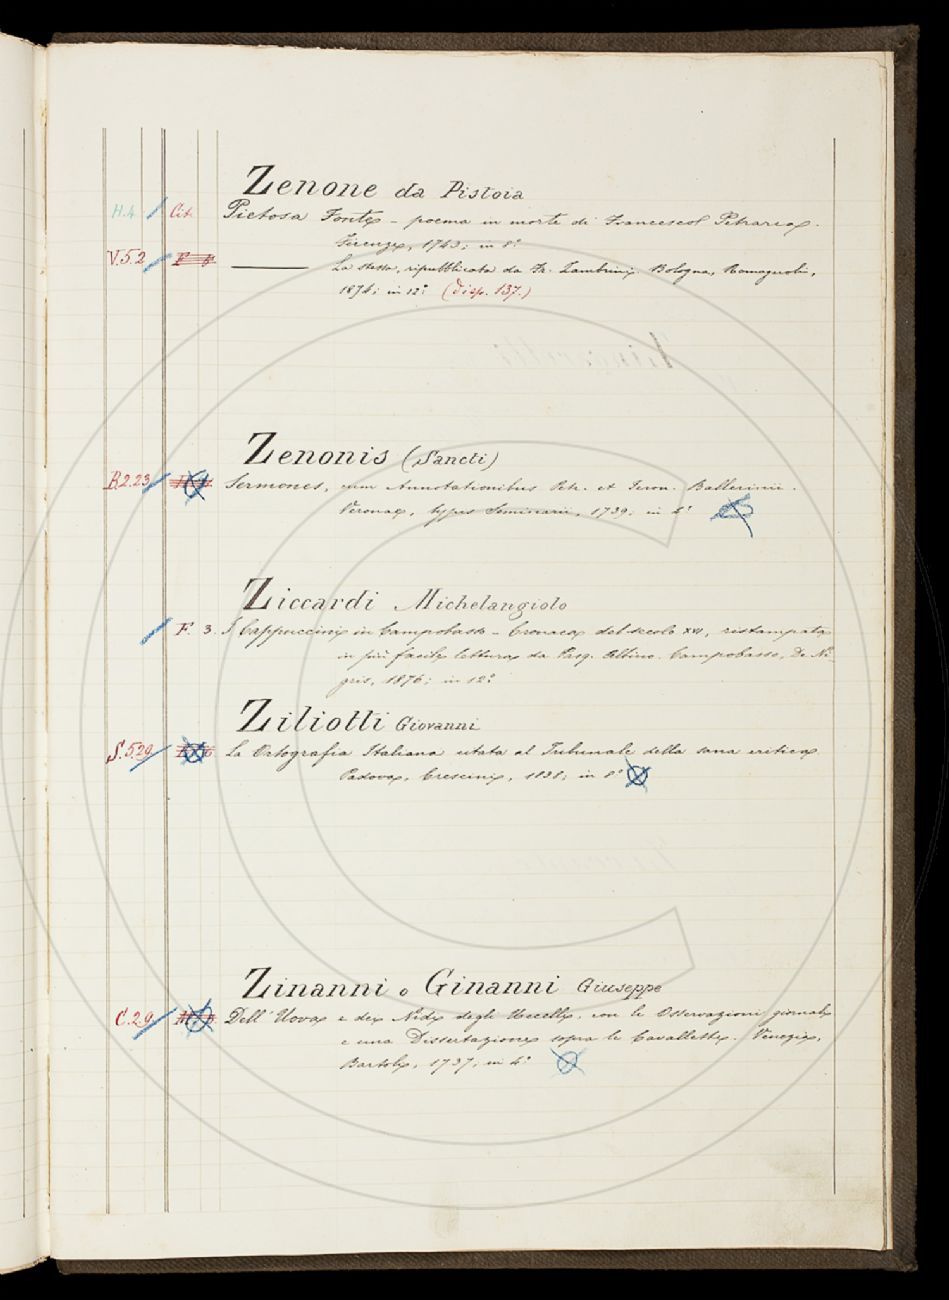 Zenone da Pistoia
H.4. Cit. Pietosa Fonte – poema in morte di Francesco Petrarca.
Firenze, 1743; in 8°
V.5.2 La stessa, ripubblicata da Fr. Zambrini. Bologna, Romagnoli,
1874; in 12° (disp. 137.)
Zenonis (Sancti)
R.2.23 Sermones, cum Annotationibus Petr. et Ieron. Ballerinii.
Veronae, typis Seminarii, 1739; in 4°
Ziccardi Michelangiolo
F. 3. I Cappuccini in Campobasso – Cronaca del secolo XVI, ristampata
in più facile lettura da Pasq. Albino. Campobasso, De Ni-
gris, 1876; in 12°
Ziliotti Giovanni
S.5.29 La Ortografia Italiana citata al Tribunale della sana critica.
Padova, Crescini, 1838; in 8°
Zinanni o Ginanni Giuseppe
C.29 Dell' Uova e dei Nidi degli Uccelli, con le Osservazioni giornali
e una Dissertazione sopra le Cavallette. Venezia,
Bortoli, 1737, in 4°